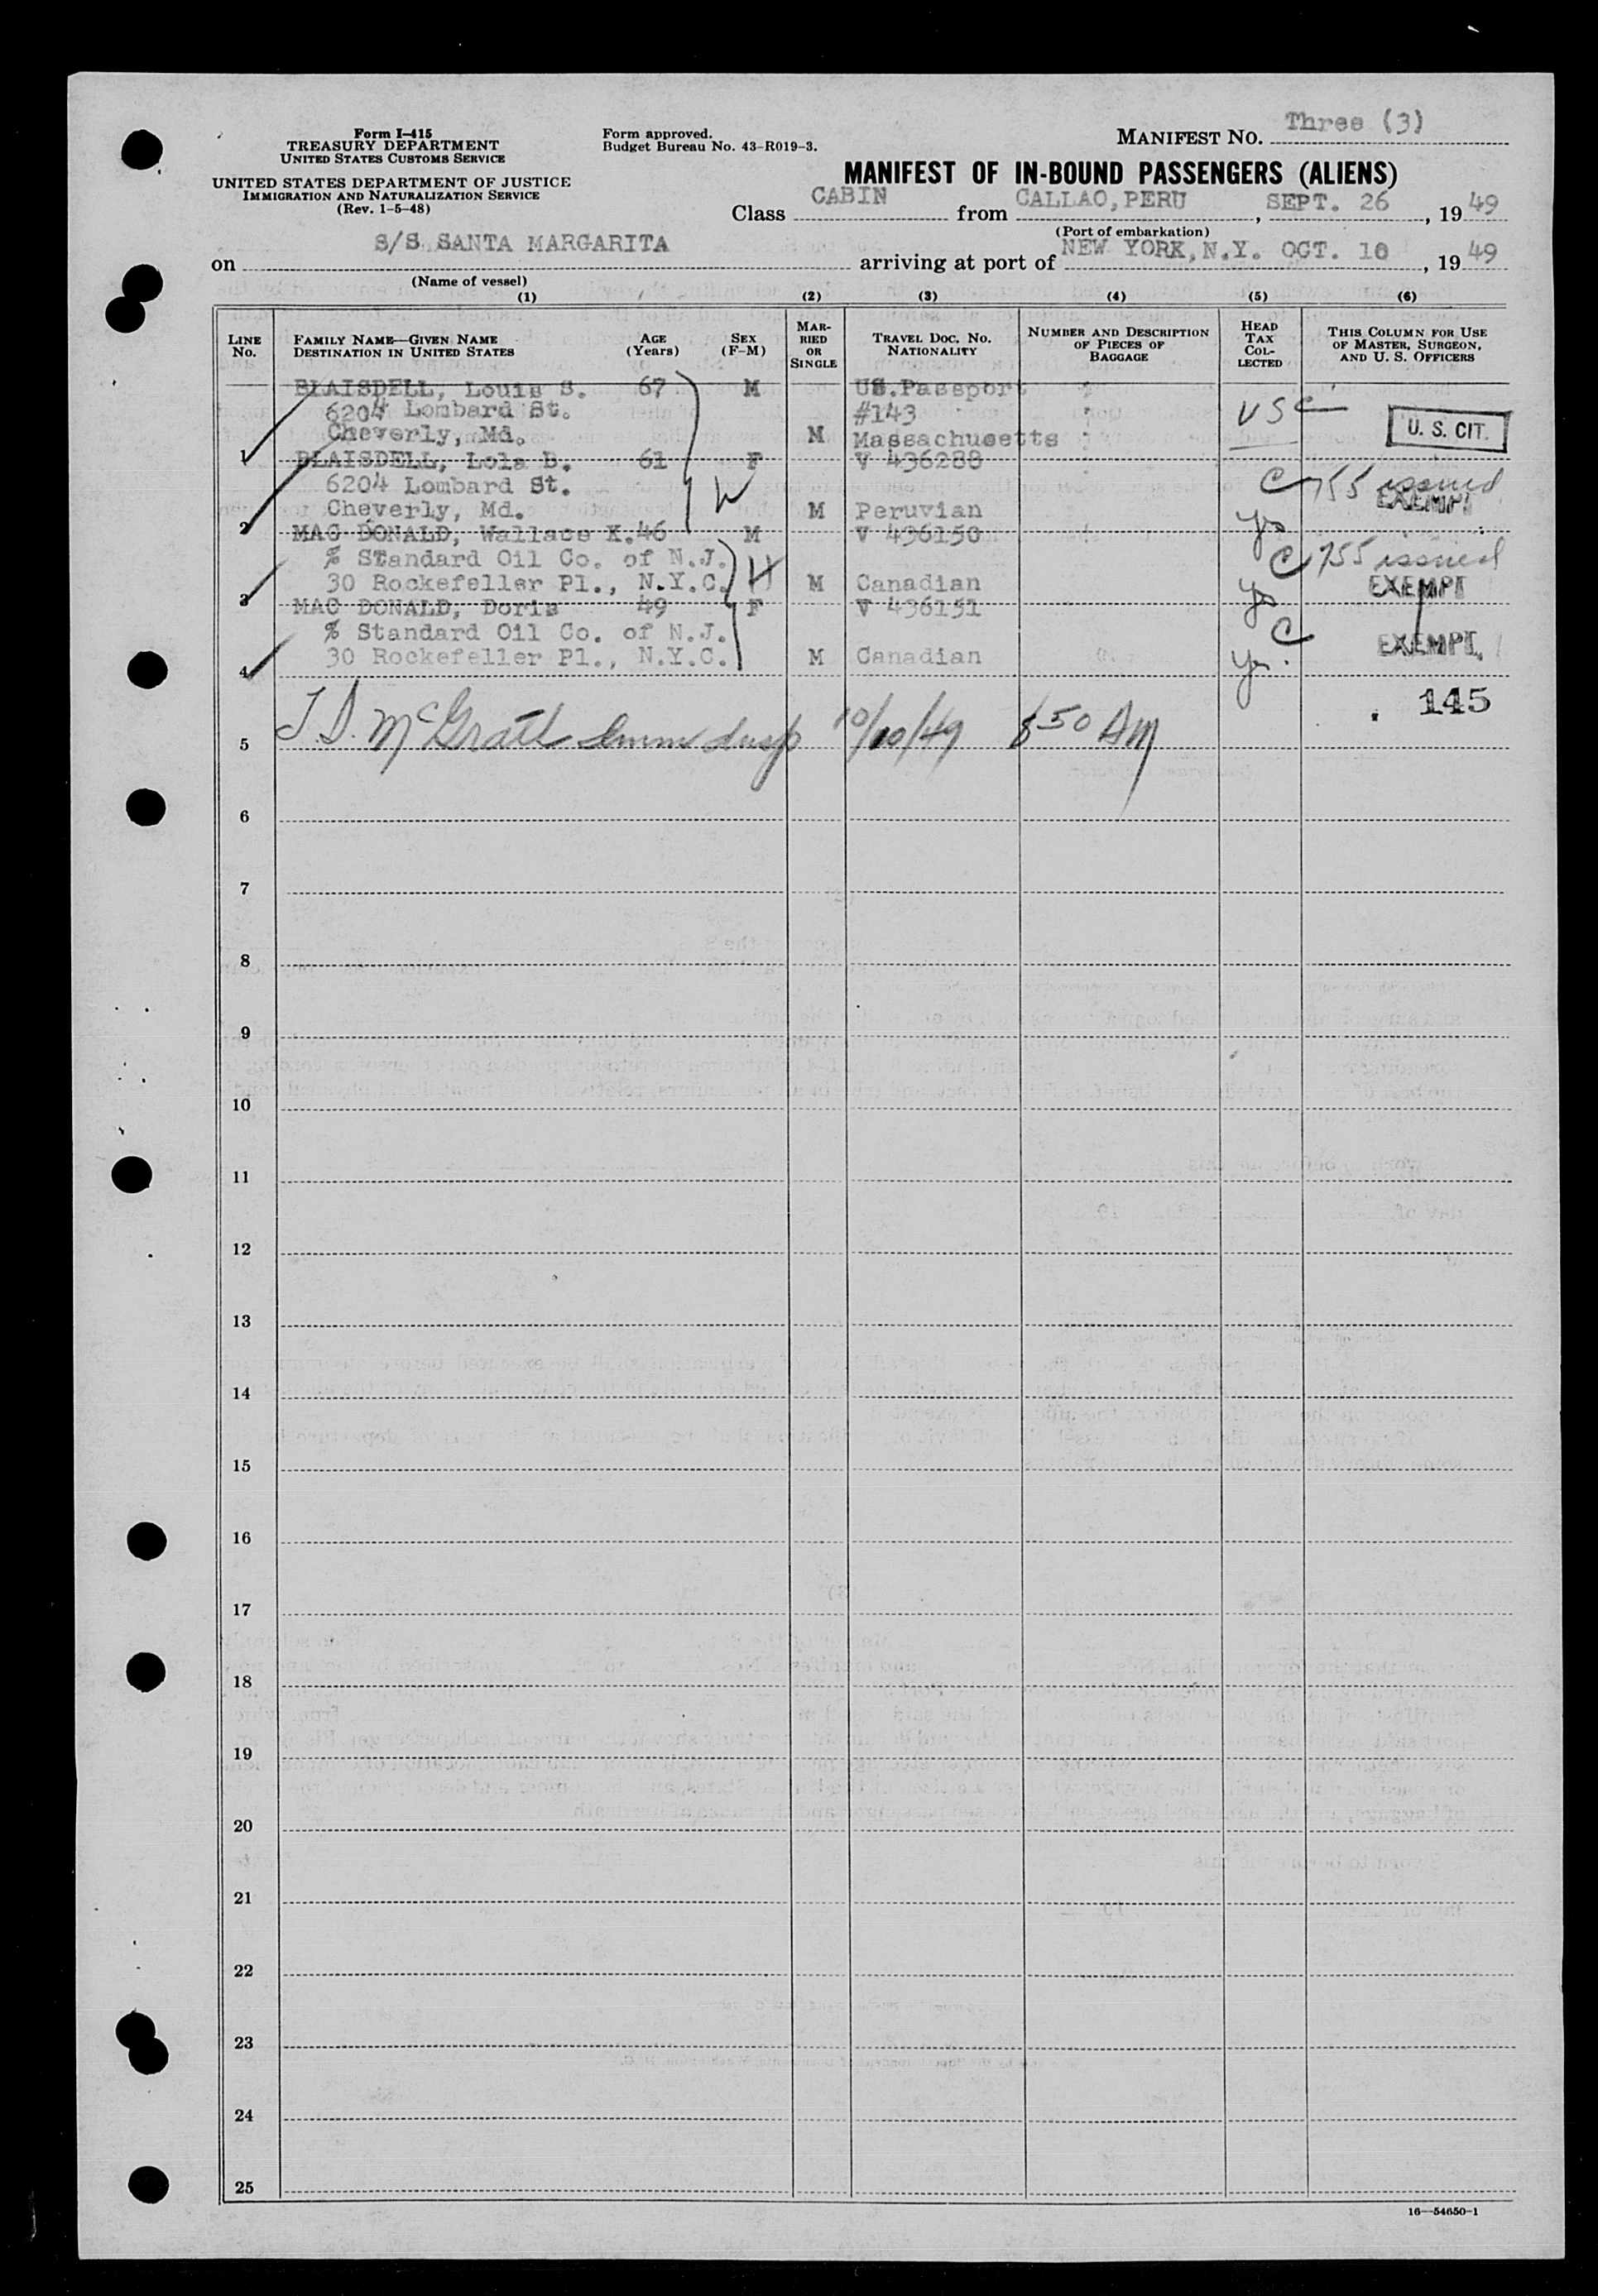 Form I-415
TREASURY DEPARTMENT
UNITED STATES CUSTOMS SERVICE
UNITED STATES DEPARTMENT OF JUSTICE
IMMIGRATION AND NATURALIZATION SERVICE
(Rev. 1-5-48)
Form approved.
Budget Bureau No. 43-R019-3.
MANIFEST NO. Three (3)
MANIFEST OF IN-BOUND PASSENGERS (ALIENS)
Class CABIN from CALLAO, PERU, SEPT. 26, 1949
(Port of embarkation)
on S/S SANTA MARGARITA arriving at port of NEW YORK, N.Y. OCT. 10, 1949
(Name of vessel)
(1) (2) (3) (4) (5) (6)
LINE No. FAMILY NAME—GIVEN NAME DESTINATION IN UNITED STATES AGE (Years) SEX (F-M) MARRIED OR SINGLE TRAVEL DOC. NO. NATIONALITY NUMBER AND DESCRIPTION OF PIECES OF BAGGAGE HEAD TAX COLLECTED THIS COLUMN FOR USE OF MASTER, SURGEON, AND U. S. OFFICERS
BLAISDELL, Louis S. 67 M US.Passport
6204 Lombard St. #143 USC
1 Cheverly, Md. M Massachusetts U. S. CIT.
BLAISDELL, Lola B. 61 F V 436288
6204 Lombard St. C 755 issued
2 Cheverly, Md. M Peruvian yes EXEMPT
MAC DONALD, Wallace K. 46 M V 436150
% Standard Oil Co. of N.J. C 755 issued
3 30 Rockefeller Pl., N.Y.C. M Canadian yes EXEMPT
MAC DONALD, Doris 49 F V 436151
% Standard Oil Co. of N.J. C
4 30 Rockefeller Pl., N.Y.C. M Canadian yes. EXEMPT
145
5 McGrath Imm Insp 10/10/49 850 AM
6
7
8
9
10
11
12
13
14
15
16
17
18
19
20
21
22
23
24
25
16—54650-1